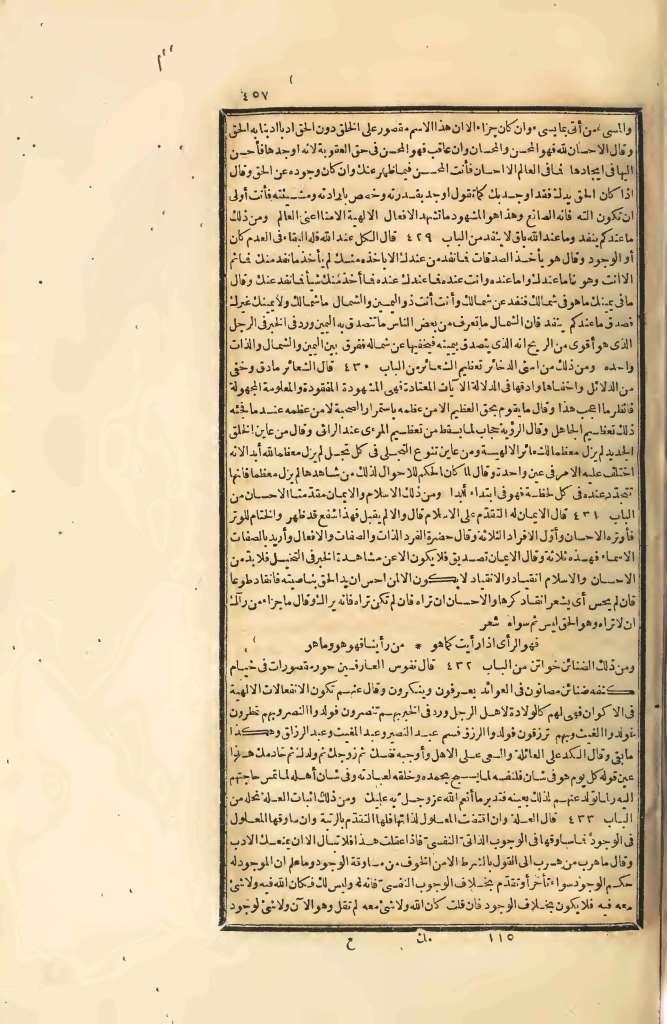 ٤٥٧
والمسىء من أتى بما يسىء وان كان جزاء الا ان هذا الاسم مقصور على الخلق دون الحق أدبا أدبنا به الحق
وقال الاحسان لله فهو المحسن والمحسان وان عاقب فهو المحسن فى حق العقوبة لانه أوجدها فأحسن
اليها فى ايجادها فما فى العالم الا احسان فأنت المحسن فيما ظهر عنك وان كان وجوده عن الحق وقال
اذا كان الحق يدلك فقد أوجد بك كما تقول أوجد بقدرته وخصص بارادته ومشيئته فأنت أولى
ان تكون آلته فانه الصانع وهذا هو المشهود ما تشهد الافعال الالهية الا منا اعنى العالم ومن ذلك
ما عندكم ينفد وما عند الله باق لا ينفد من الباب ٤٢٩ قال الكل عند الله فله البقاء فى العدم كان
أو الوجود وقال هو يأخذ الصدقات فما نفد من عندك الا بأخذه منك لم يأخذ ما نفد منك فما ثم
الا أنت وهو فما عندك وما عنده وانت عنده فما عندك عنده فما أخذ منك شيأ فما نفد عنك وقال
ما فى يمينك ما هو فى شمالك فنفد عن شمالك وأنت أنت ذو اليمين والشمال ما شمالك ولا يمينك غيرك
فصدق ما عندكم ينفد فان الشمال ما تعرف من بعض الناس ما تتصدق به اليمين ورد فى الخبر فى الرجل
الذى هو أقوى من الريح انه الذى يتصدق بيمينه فيخفيها عن شماله ففرق بين اليمين والشمال والذات
واحدة ومن ذلك من اسنى الذخائر تعظيم الشعائر من الباب ٤٣٠ قال الشعائر ما دق وخفى
من الدلائل وأخفاها وأدقها فى الدلالة الآيات المعتادة فهى المشهودة المفقودة والمعلومة المجهولة
فانظر ما أعجب هذا وقال ما يقوم بحق العظيم الا من عظمه باستمرار الصحبة لا من عظمه عند ما فجئه
ذلك تعظيم الجاهل وقال الرؤية حجاب لما يسقط من تعظيم المرء عند الرائى وقال من عاين الخلق
الجديد لم يزل معظما لك شعائر الالهية ومن عاين تنوع التجلى فى كل تجل لم يزل معظما لله أبدا لانه
اختلف عليه الامر فى عين واحدة وقال لما كان الحكم للاحوال لذلك من شاهدها لم يزل معظما فانها
تتجدد عنده فى كل لحظة فهو فى ابتداء أبدا ومن ذلك الاسلام والايمان مقدمتا الاحسان من
الباب ٤٣١ قال الايمان له التقدم على الاسلام قال والا لم يقبل فهذا شفع قد ظهر والختام للوتر
فأوتره الاحسان وأول الافراد الثلاثة وقال حضرة الفرد الذات والصفات والافعال وأريد بالصفات
الاسماء فهذه ثلاثة وقال الايمان تصديق فلا يكون الا عن مشاهدة الخبر فى التخيل فلا بد من
الاحسان والاسلام انقياد والانقياد لا يكون الا لمن احس ان يد الحق بناصيته فانقاد طوعا
فان لم يحس أى يشعر انقاد كرها والاحسان ان تراه فان لم تكن تراه فانه يراك وقال ما جزاء من رآك
ان لا تراه وهو الحق ليس ثم سواه شعر
فهو الرأى اذا رأيت كما هو * من رأينا فهو هو وما هو
ومن ذلك الضنائن خواتن من الباب ٤٣٢ قال نفوس العارفين حور مقصورات فى خيام
كنفه ضنائن مصانون فى العوائد يعرفون وينكرون وقال عنهم تكون الانفعالات الالهية
فى الاكوان فهى لهم كالولادة لاهل الرجل ورد فى الخبر بهم تنصرون فولدوا النصر وبهم تمطرون
فولدوا الغيث وبهم ترزقون فولدوا الرزق فسم عبد النصر وعبد المغيث وعبد الرزاق وهكذا
ما بقى وقال الكد على العائلة والسعى على الاهل وأوجبه نفسك ثم زوجك ثم ولدك ثم خادمك هذا
عين قوله كل يوم هو فى شان فلنفسه لما يسبح بحمده وخلقه لعبادته وفى شان أهله لما تمس حاجتهم
اليه ما يتولد عنهم لذلك بعينه فتدبر ما أنعم الله عز وجل به عليك ومن ذلك اثبات العلة نحلة من
الباب ٤٣٣ قال العلة وان اقتضت المعلول لذاتها فلها التقدم بالرتبة وان ساوقها المعلول
فى الوجود فما ساوقها فى الوجوب الذاتى النفسى فاذا عقلت هذا فلا تبال الا ان يمنعك الادب
وقال ما هرب من هرب الى القول بالشرط الا من الخوف من مساوقة الوجود وما علم ان الموجود له
حكم الوجود سواء تأخر أو تقدم بخلاف الوجوب النفسى فانه له وليس لك فكان الله فيه ولا شئ
معه فيه فلا يكون بخلاف الوجود فان قلت كان الله ولا شئ معه لم تقل وهو الآن ولا شئ لوجود
١١٥ مك ح